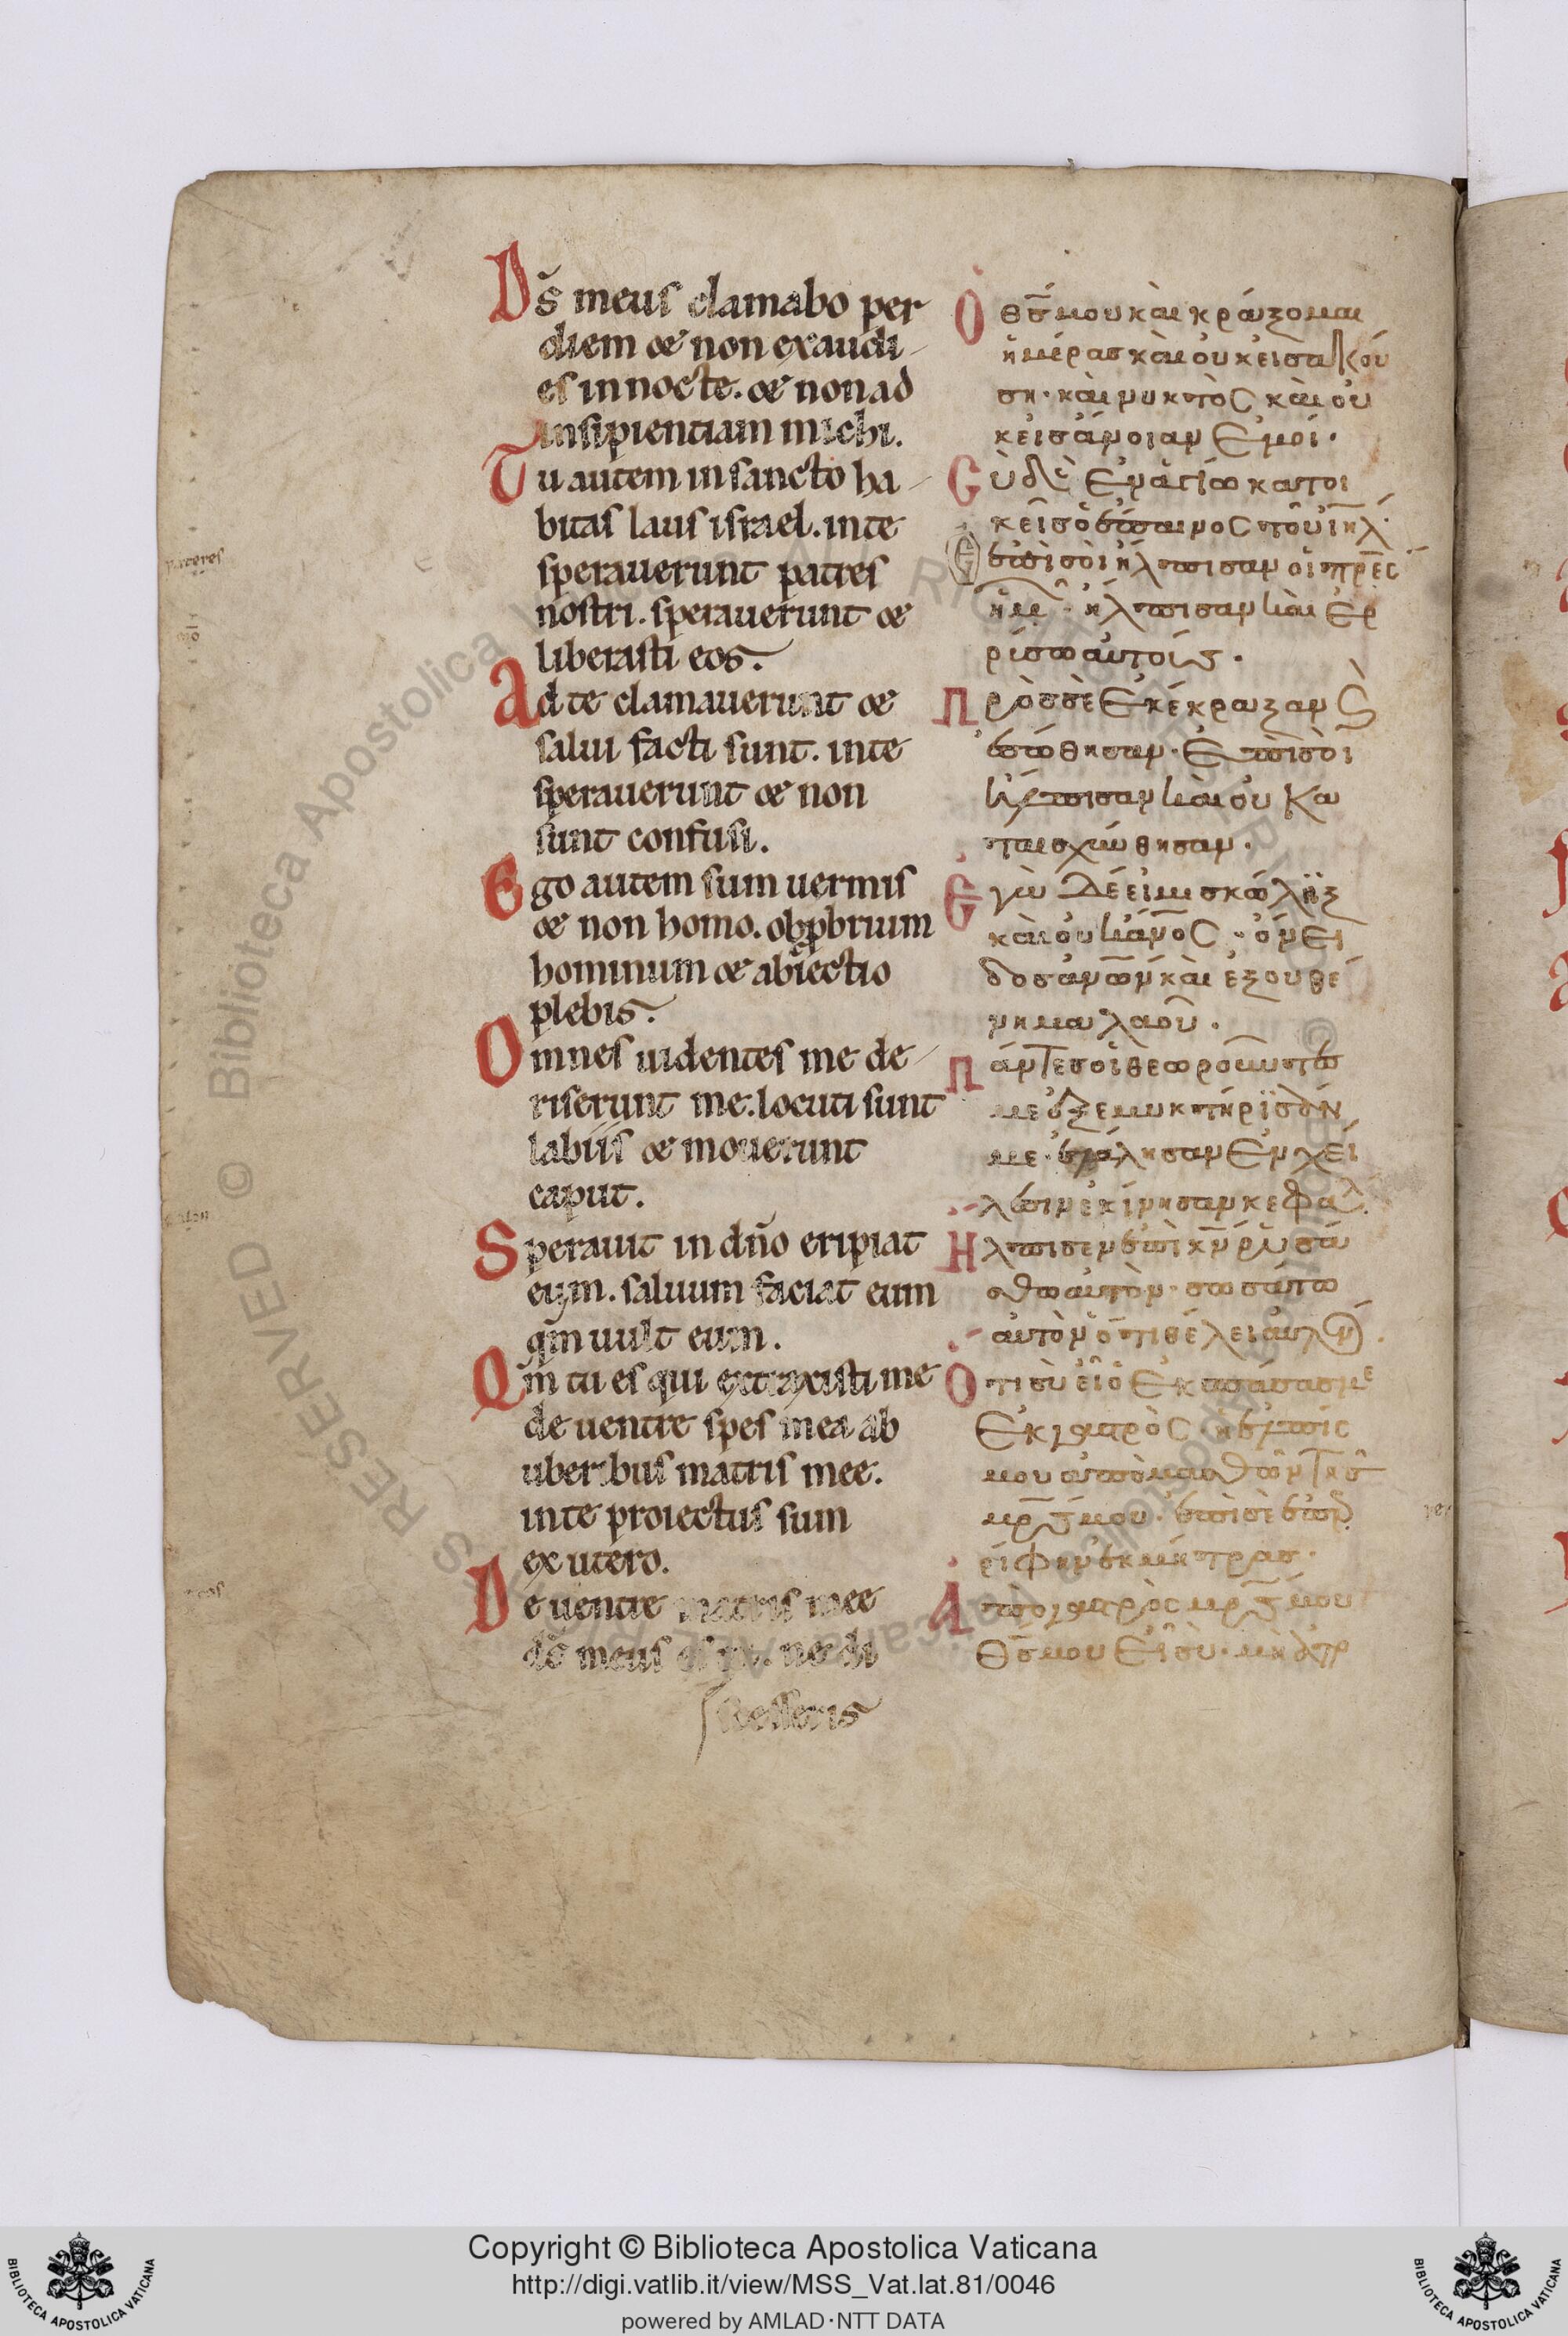 Ds̄ meus clamabo per
diem & non exaudi-
es in nocte. & non ad
insipientiam michi.
Tu autem in sancto ha-
bitas laus israel. in te
sperauerunt patres
nostri. sperauerunt &
liberasti eos.
Ad te clamauerunt &
salui facti sunt. in te
sperauerunt & non
sunt confusi.
Ego autem sum uermis
& non homo. obp̱brium
hominum & abiectio
plebis.
Omnes uidentes me de-
riserunt me. locuti sunt
labiis & mouerunt
caput.
Sperauit in dn̄o eripiat
eum. saluum faciat eum
qm̄ uult eum.
Qm̄ tu es qui extraxisti me
de uentre spes mea ab
uberibus matris mee.
in te proiectus sum
ex utero.
De uentre matris mee
ds̄ meus es tu. ne di
scesseris
Ὁ θς̄ μου καὶ κράξομαι
ἡμέρας καὶ οὐκ εἰσακού
ση· καὶ νυκτὸς καὶ οὐ
κ εἰς ἄνοιαν ἐμοί·
Σὺ δὲ ἐν ἁγίω κατοι
κεῖς ὁ ἔπαινος τοῦ ιη̄λ·
Ἐπὶ σοὶ ἤλπισαν οἱ πρ̄ες
ἡμῶν· ἤλπισαν καὶ ἐρ
ρίσω αὐτούς·
Πρὸς σὲ ἐκέκραξαν ϗ
ἐσώθησαν· ἐπὶ σοὶ
ἤλπισαν καὶ οὐ κα
ταισχύνθησαν·
Ἐγὼ δέ εἰμι σκώληξ
καὶ οὐκ ἄν̄ος· ὄνει
δος ἀνω̄ν καὶ ἐξουθέ
νημα λαοῦ·
Πάντες οἱ θεωροῦντες
με ἐξεμυκτήρισάν
με· ἐλάλησαν ἐν χεί
λεσιν ἐκίνησαν κεφαλ
Ἤλπισεν ἐπὶ κν̄ ῥυσά
σθω αὐτὸν· σωσάτω
αὐτὸν ὅτι θέλει αὐτόν·
Ὅτι σὺ εἶ ὁ ἐκσπάσας με
ἐκ γαστρὸς· ἡ ἐλπίς
μου ἀπὸ μασθῶν τῆς
μρ̄ς μου· ἐπὶ σὲ ἐπερ
ρίφην ἐκ μήτρας·
Ἀπὸ γαστρὸς μρ̄ς μου
θς̄ μου εἶ σὺ· μὴ ἀπο
Copyright © Biblioteca Apostolica Vaticana
http://digi.vatlib.it/view/MSS_Vat.lat.81/0046
powered by AMLAD·NTT DATA